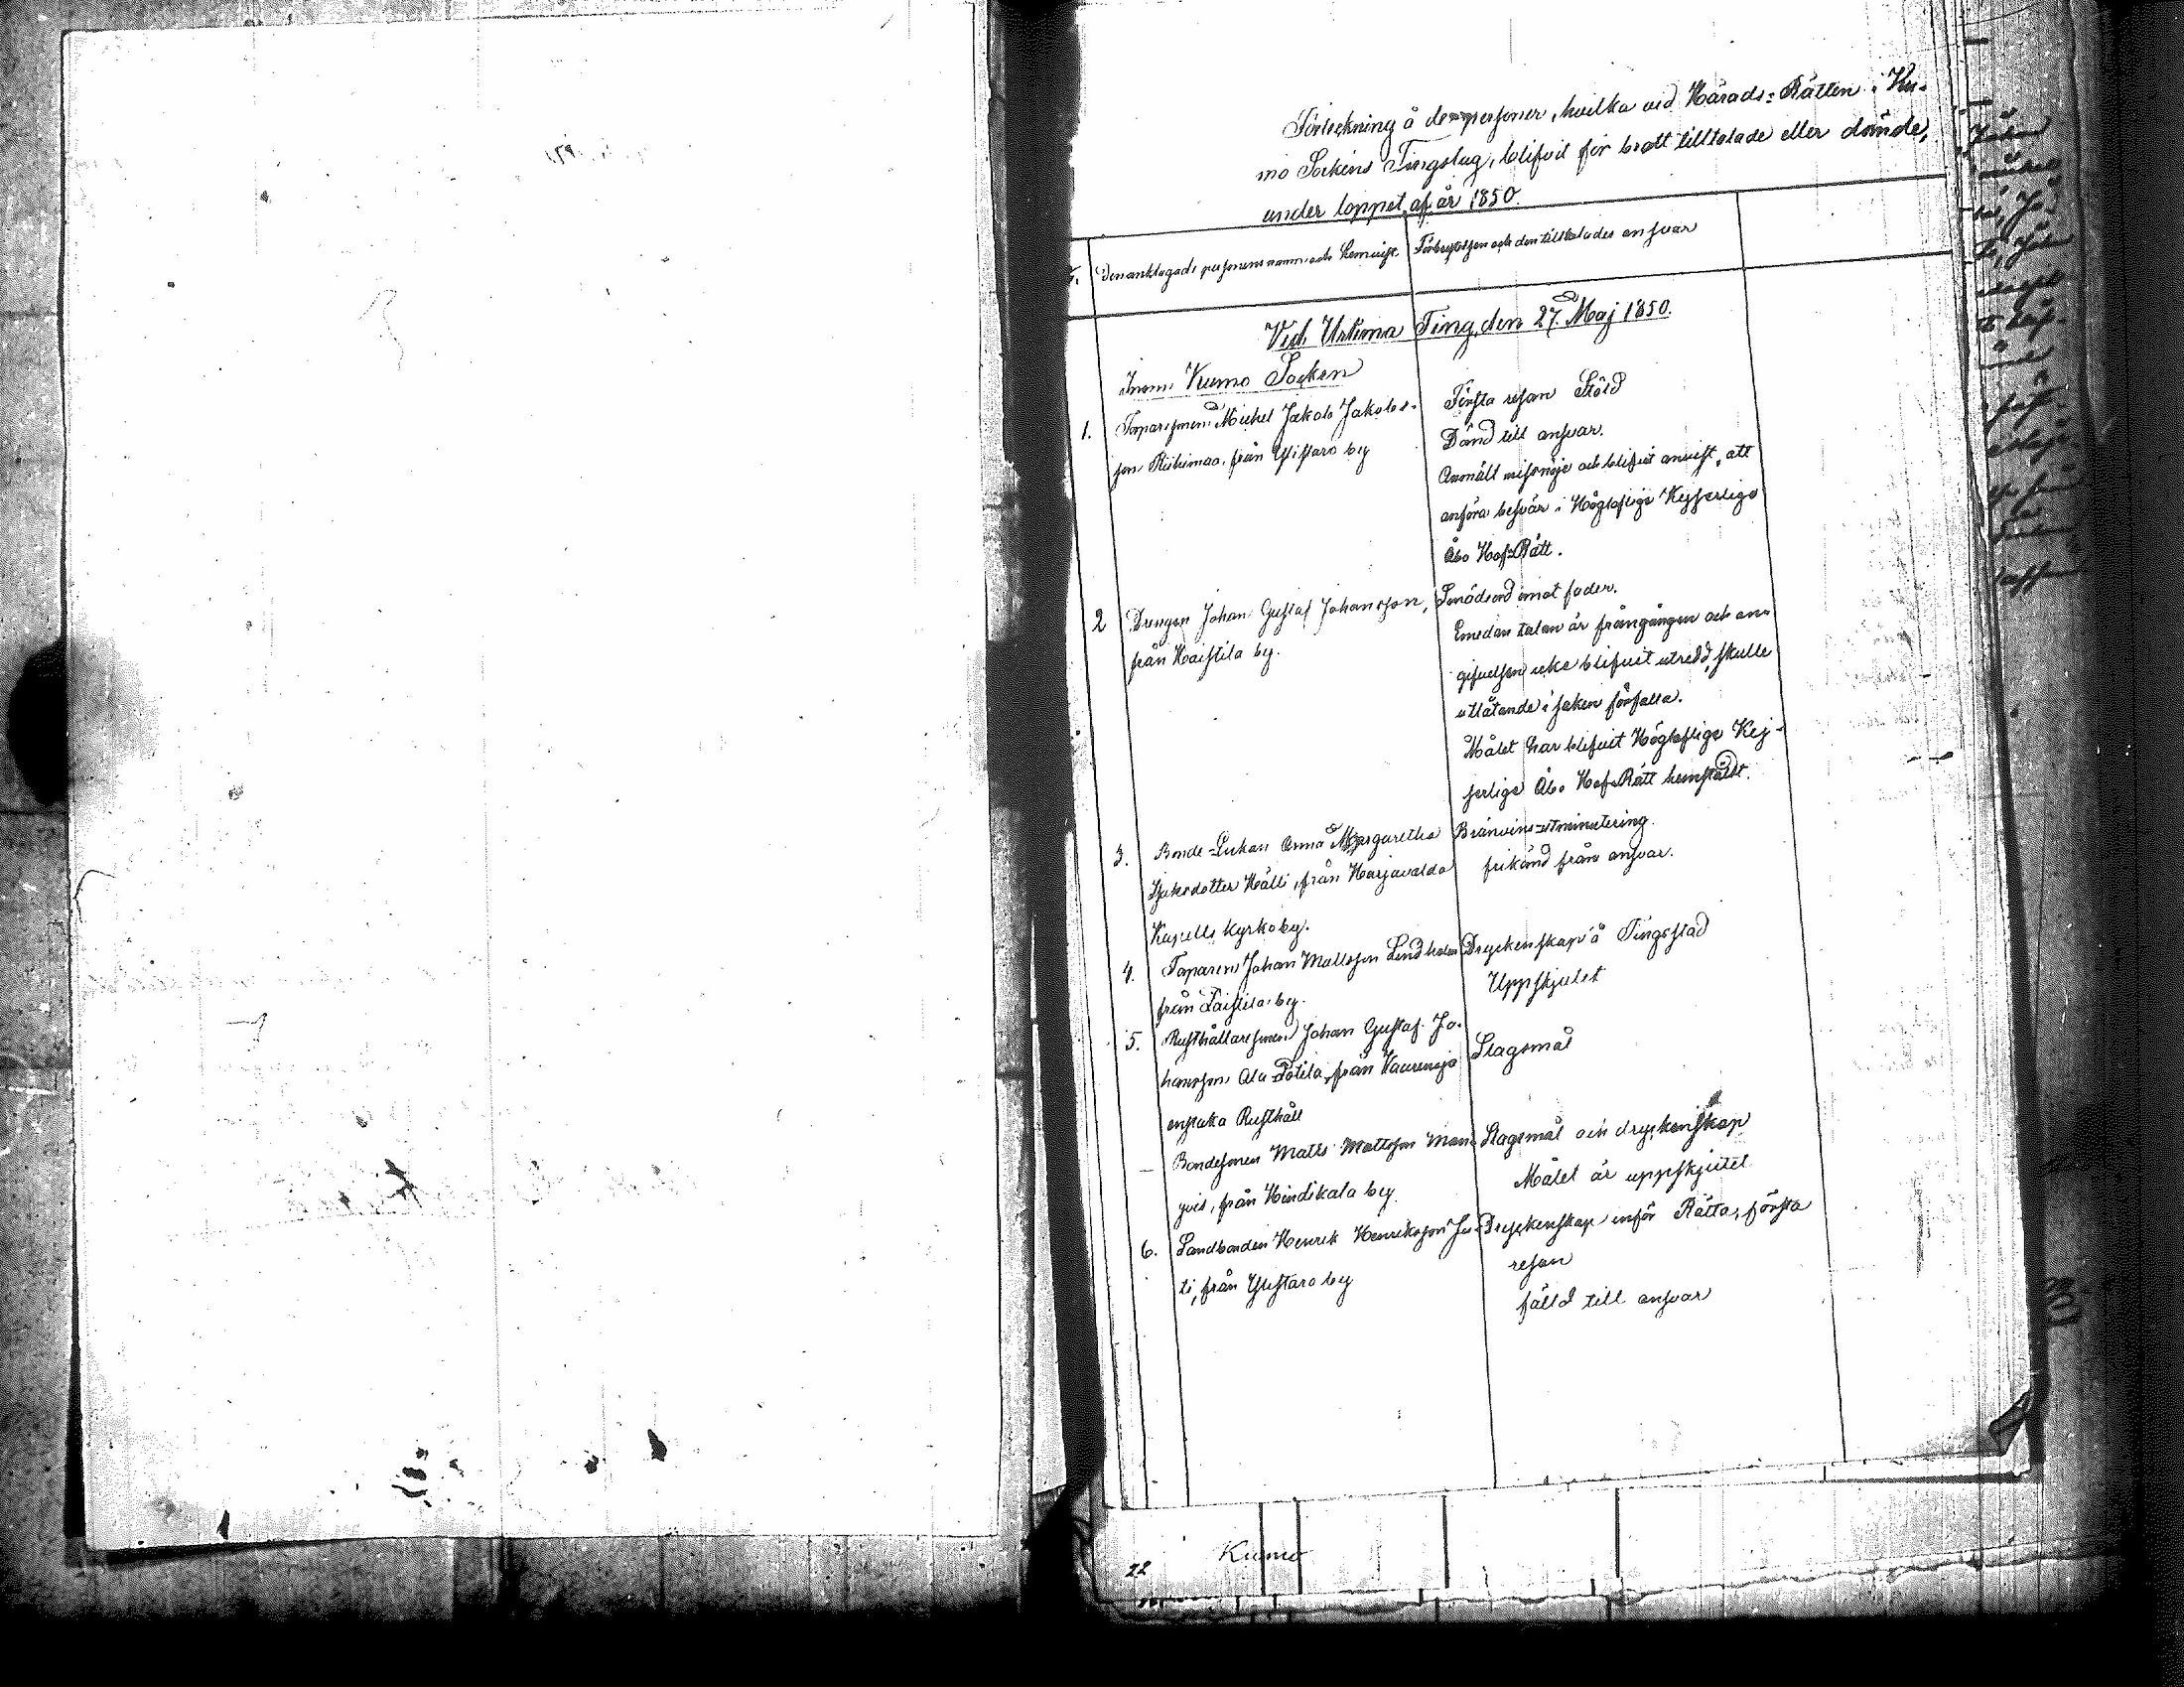 Förteckning å de personer, hvilka vid Härads=Rätten i Ku-
mo Sockens Tingslag, blifvit för brott tilltalade eller dömde,
under loppet af år 1850.
Den anklagade personens namn och hemvist. Förbrytelsen och den tilltalades ansvar
Vid Urtima Ting, den 27 Maj 1850.
Inom Kumo Socken
1. Torparesonen Michel Jakob Jakobs-
son Riihimaa, från Ylistaro by
Första resan Stöld
Dömd till ansvar.
Anmält missnöje och blifvit anvist, att
anföra besvär i Högloflige Kejserlige
Åbo Hof=Rätt.
2 Drengen Johan Gustaf Johansson,
från Haistila by.
Smädeord emot fader.
Emedan talan är frångången och an-
gifvelsen icke blifvit utredd, skulle
utlåtande i saken förfalla.
Målet har blifvit Högloflige Kej-
serlige Åbo Hof=Rätt hemstäldt.
3. Bonde-Enkan Anna Margaretha
Isaksdotter Hälli, från Harjavalda
Kapells Kyrkoby.
Bränvins=utminutering.
frikänd från ansvar.
4. Torparen Johan Mattsson Lindholm
från Laistila by.
Dryckenskap å Tingsstad
Uppskjutet
5. Rusthållaresonen Johan Gustaf Jo-
hansson Ala Potila, från
enstaka Rusthåll
Slagsmål
— Bondesonen Matts Mattsson
från Hindikala by.
Slagsmål och dryckenskap
Målet är uppskjutet
6. Landbonden Henrik Henriksson Ju-
ti, från Ylistaro by
Dryckenskap inför Rätta, första
resan
fälld till ansvar
22 Kumo